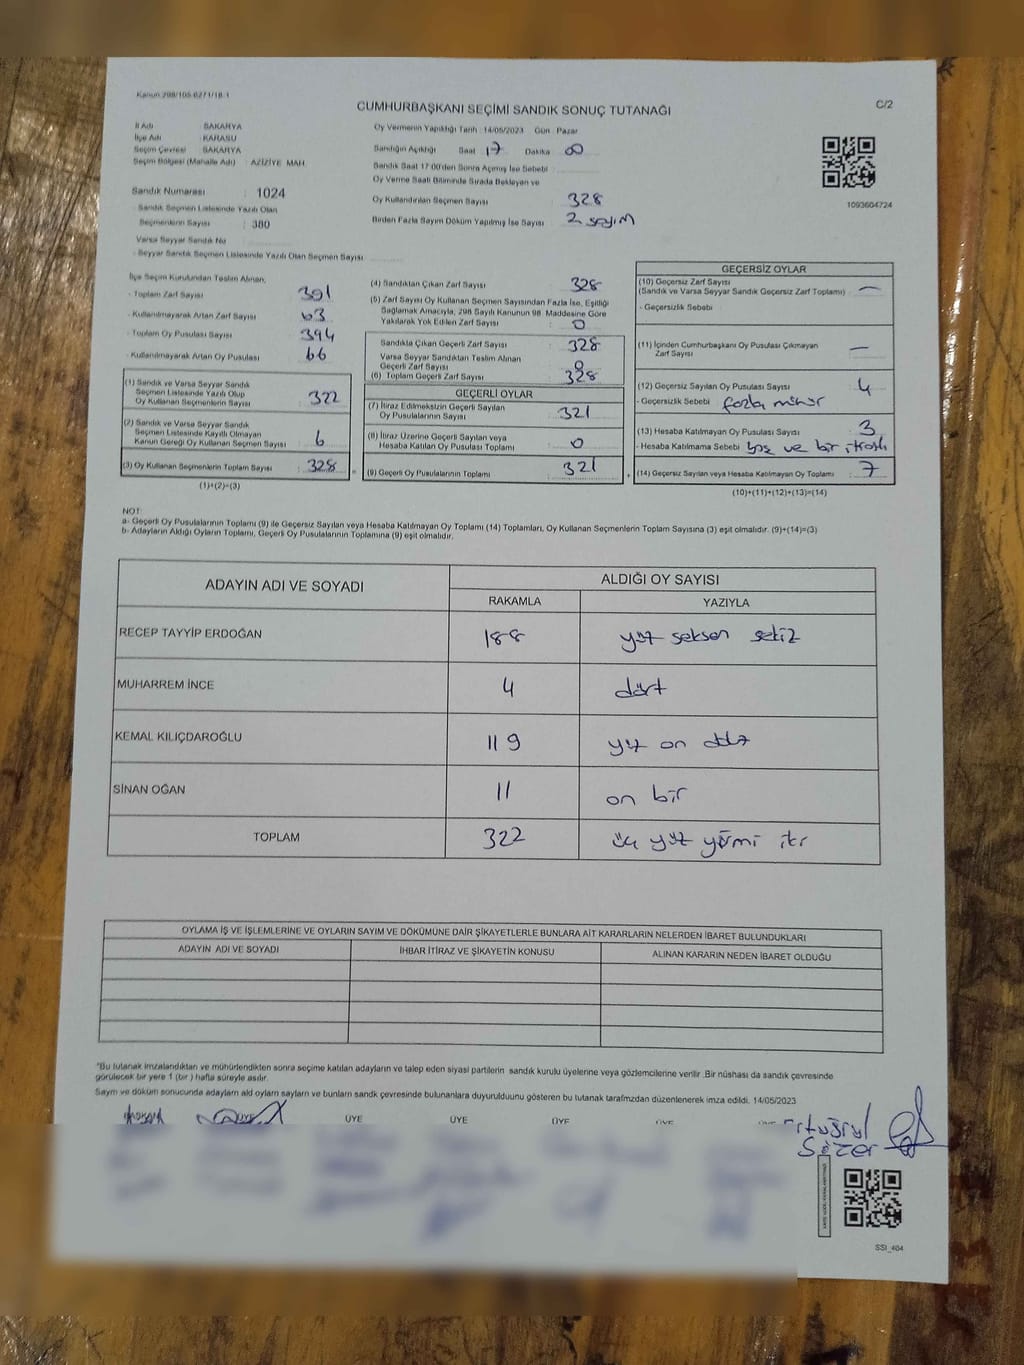 Kanun 298/105-6271/18-1
CUMHURBAŞKANI SEÇİMİ SANDIK SONUÇ TUTANAĞI
C/2
İl Adı : SAKARYA
İlçe Adı : KARASU
Seçim Çevresi : SAKARYA
Seçim Bölgesi (Mahalle Adı) : AZİZİYE MAH.
Sandık Numarası : 1024
- Sandık Seçmen Listesinde Yazılı Olan
Seçmenlerin Sayısı : 380
Varsa Seyyar Sandık No
- Seyyar Sandık Seçmen Listesinde Yazılı Olan Seçmen Sayısı
Oy Vermenin Yapıldığı Tarih : 14/05/2023 Gün Pazar
Sandığın Açıldığı Saat 17 Dakika 00
Sandık Saat 17:00'den Sonra Açılmış İse Sebebi
Oy Verme Saati Bitiminde Sırada Bekleyen ve
Oy Kullandırılan Seçmen Sayısı 328
Birden Fazla Sayım Döküm Yapılmış İse Sayısı 2. sayım
1093604724
İlçe Seçim Kurulundan Teslim Alınan,
- Toplam Zarf Sayısı : 391
- Kullanılmayarak Artan Zarf Sayısı : 63
- Toplam Oy Pusulası Sayısı : 394
- Kullanılmayarak Artan Oy Pusulası : 66
(1) Sandık ve Varsa Seyyar Sandık
Seçmen Listesinde Yazılı Olup
Oy Kullanan Seçmenlerin Sayısı : 322
(2) Sandık ve Varsa Seyyar Sandık
Seçmen Listesinde Kayıtlı Olmayan
Kanun Gereği Oy Kullanan Seçmen Sayısı : 6
(3) Oy Kullanan Seçmenlerin Toplam Sayısı : 328
(1)+(2)=(3)
(4) Sandıktan Çıkan Zarf Sayısı : 328
(5) Zarf Sayısı Oy Kullanan Seçmen Sayısından Fazla İse, Eşitliği
Sağlamak Amacıyla, 298 Sayılı Kanunun 98. Maddesine Göre
Yakılarak Yok Edilen Zarf Sayısı : 0
Sandıkta Çıkan Geçerli Zarf Sayısı : 328
Varsa Seyyar Sandıktan Teslim Alınan
Geçerli Zarf Sayısı : 0
(6) Toplam Geçerli Zarf Sayısı : 328
GEÇERLİ OYLAR
(7) İtiraz Edilmeksizin Geçerli Sayılan
Oy Pusulalarının Sayısı : 321
(8) İtiraz Üzerine Geçerli Sayılan veya
Hesaba Katılan Oy Pusulası Toplamı : 0
(9) Geçerli Oy Pusulalarının Toplamı : 321
GEÇERSİZ OYLAR
(10) Geçersiz Zarf Sayısı
(Sandık ve Varsa Seyyar Sandık Geçersiz Zarf Toplamı) : —
- Geçersizlik Sebebi :
(11) İçinden Cumhurbaşkanı Oy Pusulası Çıkmayan
Zarf Sayısı : —
(12) Geçersiz Sayılan Oy Pusulası Sayısı : 4
- Geçersizlik Sebebi : fazla mühür
(13) Hesaba Katılmayan Oy Pusulası Sayısı : 3
- Hesaba Katılmama Sebebi : boş ve bir
(14) Geçersiz Sayılan veya Hesaba Katılmayan Oy Toplamı : 7
(10)+(11)+(12)+(13)=(14)
NOT:
a- Geçerli Oy Pusulalarının Toplamı (9) ile Geçersiz Sayılan veya Hesaba Katılmayan Oy Toplamı (14) Toplamları, Oy Kullanan Seçmenlerin Toplam Sayısına (3) eşit olmalıdır. (9)+(14)=(3)
b- Adayların Aldığı Oyların Toplamı, Geçerli Oy Pusulalarının Toplamına (9) eşit olmalıdır.
ADAYIN ADI VE SOYADI
ALDIĞI OY SAYISI
RAKAMLA YAZIYLA
RECEP TAYYİP ERDOĞAN 188 yüz seksen sekiz
MUHARREM İNCE 4 dört
KEMAL KILIÇDAROĞLU 119 yüz on dokuz
SİNAN OĞAN 11 on bir
TOPLAM 322 üç yüz yirmi iki
OYLAMA İŞ VE İŞLEMLERİNE VE OYLARIN SAYIM VE DÖKÜMÜNE DAİR ŞİKAYETLERLE BUNLARA AİT KARARLARIN NELERDEN İBARET BULUNDUKLARI
ADAYIN ADI VE SOYADI İHBAR İTİRAZ VE ŞİKAYETİN KONUSU ALINAN KARARIN NEDEN İBARET OLDUĞU
*Bu tutanak imzalandıktan ve mühürlendikten sonra seçime katılan adayların ve talep eden siyasi partilerin sandık kurulu üyelerine veya gözlemcilerine verilir. Bir nüshası da sandık çevresinde
görülecek bir yere 1 (bir) hafta süreyle asılır.
Sayım ve döküm sonucunda adayların aldığı oyların sayıları ve bunların sandık çevresinde bulunanlara duyurulduğunu gösteren bu tutanak tarafımızdan düzenlenerek imza edildi. 14/05/2023
BAŞKAN ÜYE ÜYE ÜYE ÜYE ÜYE
Sözer
SSI_404